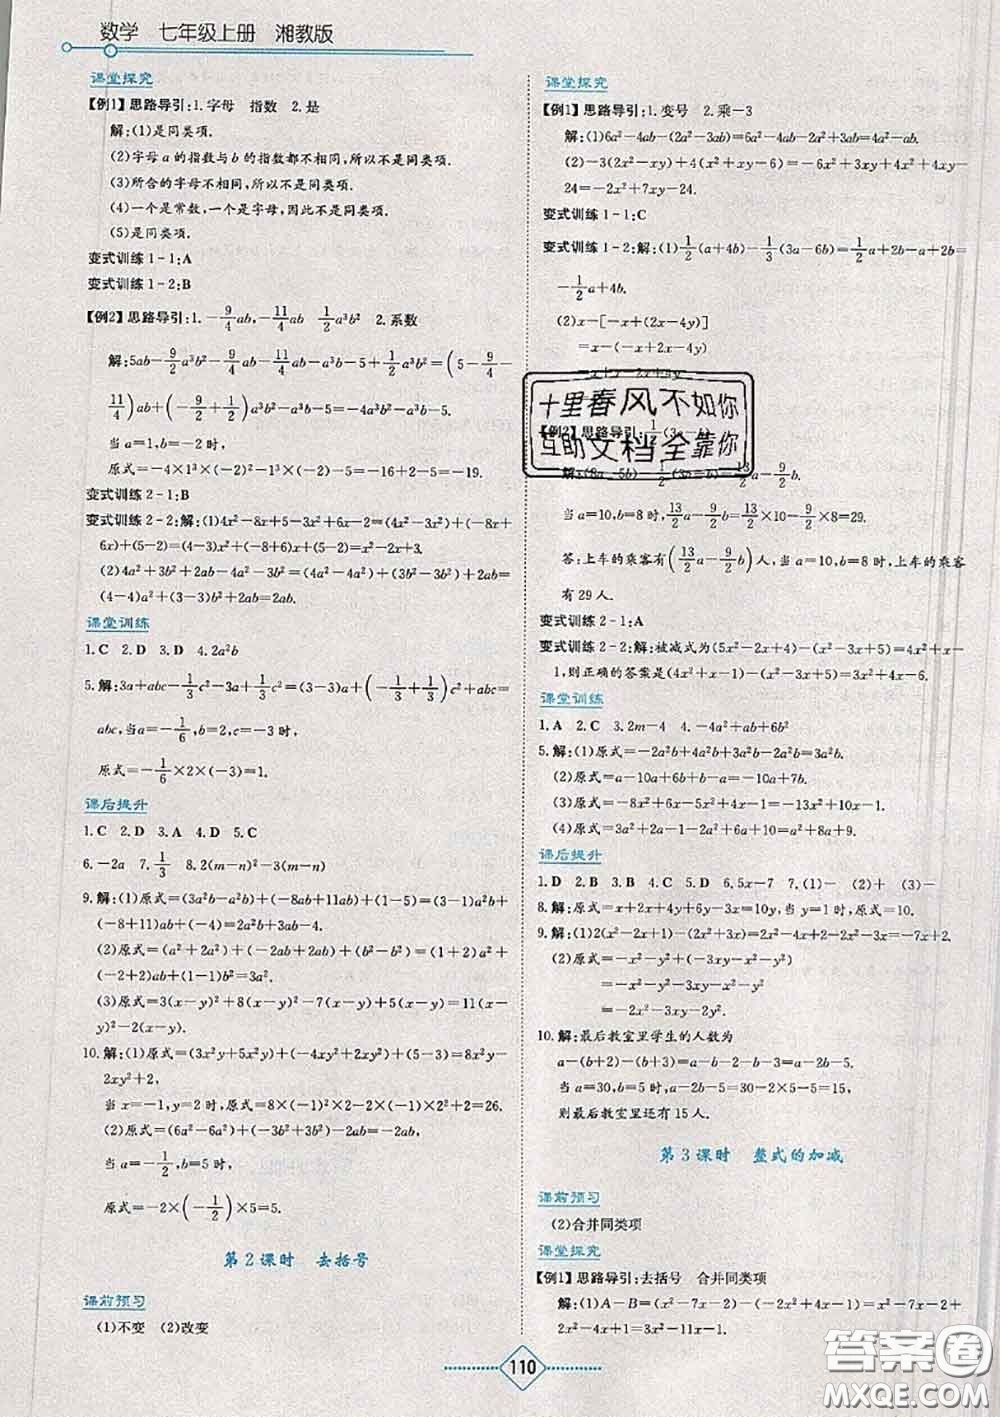 数学 七年级上册 湘教版
课堂探究
【例1】思路导引:1.字母 指数 2.是
解:(1)是同类项.
(2)字母a的指数与b的指数都不相同,所以不是同类项.
(3)所含的字母不相同,所以不是同类项.
(4)一个是常数,一个是字母,因此不是同类项.
(5)是同类项.
变式训练1-1:A
变式训练1-2:B
【例2】思路导引:1.-9/4ab,-11/4ab 1/2a³b² 2.系数
解:5ab-9/2a³b²-9/4ab-11/4ab-a³b-5+1/2a³b²=(5-9/4-
11/4)ab+(-9/2+1/2)a³b²-a³b-5=-4a³b²-a³b-5.
当a=1,b=2时,
原式=-4×1³×2²-1³×2-5=-23.
变式训练2-1:B
变式训练2-2:解:(1)4x²-8x+5-3x²+6x-2=(4x²-3x²)+(-8x+
6x)+(5-2)=(4-3)x²+(-8+6)x+(5-2)=x²-2x+3.
(2)4a²+3b²+2ab-4a²-3b²=(4a²-4a²)+(3b²-3b²)+2ab=
(4-4)a²+(3-3)b²+2ab=2ab.
课堂训练
1.C 2.D 3.D 4.2a²b
5.解:3a+abc-1/3c²-3a+1/3c²=(3-3)a+(-1/3+1/3)c²+abc=
abc,当a=-1/6,b=2,c=-3时,
原式=-1/6×2×(-3)=1.
课后提升
1.C 2.D 3.A 4.D 5.C
6.-2a 7.1/3 8.2(m-n)²-3(m-n)
9.解:(1)原式=(3a²b-a²b)+(-8ab+11ab)+(-4)=(3-1)a²b+
(-8+11)ab+(-4)=2a²b+3ab-4.
(2)原式=(a²+2a²)+(-2ab+2ab)+(b²-b²)=(1+2)a²+
(-2+2)ab+(1-1)b²=3a².
(3)原式=3(x-y)²+8(x-y)²-7(x-y)+5(x-y)=11(x-
y)²-2(x-y).
10.解:(1)原式=(3x²y+5x²y)+(-4xy²+2xy²)+(-3+5)=8x²y-
2xy²+2,
当x=-1,y=2时,原式=8×(-1)²×2-2×(-1)×2²+2=26.
(2)原式=(6a²-6a²)+(-3b²+3b²)-2ab=-2ab,
当a=-1/2,b=5时,
原式=-2×(-1/2)×5=5.
第2课时 去括号
课前预习
(1)不变 (2)改变
课堂探究
【例1】思路导引:1.变号 2.乘-3
解:(1)6a²-4ab-(2a²-3ab)=6a²-4ab-2a²+3ab=4a²-ab.
(2)-3(2x²-xy)+4(x²+xy-6)=-6x²+3xy+4x²+4xy-
24=-2x²+7xy-24.
变式训练1-1:C
变式训练1-2:(1)1/2(a+4b)-1/3(3a-6b)=1/2a+2b-a+2b=
-1/2a+4b.
(2)x-[-x+(2x-4y)]
=x-(-x+2x-4y)
=x+x-2x+4y
十里春风不如你
【例2】思路导引:1/2(3a-b)
互助文档全靠你
解:(8a-5b)-1/2(3a-b)=13/2a-9/2b.
当a=10,b=8时,13/2a-9/2b=13/2×10-9/2×8=29.
答:上车的乘客有(13/2a-9/2b)人,当a=10,b=8时,上车的乘客
有29人.
变式训练2-1:A
变式训练2-2:解:被减式为(5x²-2x+4)-(x²-3x+5)=4x²+x-
1,则正确的答案是(4x²+x-1)-(x²-3x+5)=3x²+4x-6.
课堂训练
1.A 2.C 3.2m-4 4.-4a²+ab+6b²
5.解:(1)原式=-2a²b+4a²b+3a²b-2a²b=3a²b.
(2)原式=a-10a+6b+b-a=-10a+7b.
(3)原式=-8x²+6x-5x²+4x-1=-13x²+10x-1.
(4)原式=3a²+2a-1-2a²+6a+10=a²+8a+9.
课后提升
1.D 2.B 3.B 4.D 5.D 6.5x-7 7.(1)- (2)+ (3)-
8.解:原式=x+2x+4y+6y-3x=10y,当y=1时,原式=10.
9.解:(1)2(x²-2x+1)-(2x²+3x)=2x²-4x+2-2x²-3x=-7x+2.
(2)原式=-x²-y²+(-3xy-x²-y²)
=-x²-y²-3xy-x²-y²
=-2x²-3xy-2y².
10.解:最后教室里学生的人数为
a-(b+2)-(b+3)=a-b-2-b-3=a-2b-5.
当a=30,b=5时,a-2b-5=30-2×5-5=15,
则最后教室里还有15人.
第3课时 整式的加减
课前预习
(2)合并同类项
课堂探究
【例1】思路导引:去括号 合并同类项
解:(1)A-B=(x²-7x-2)-(-2x²+4x-1)=x²-7x-2+
2x²-4x+1=3x²-11x-1.
110
答案圈
MXQE.COM